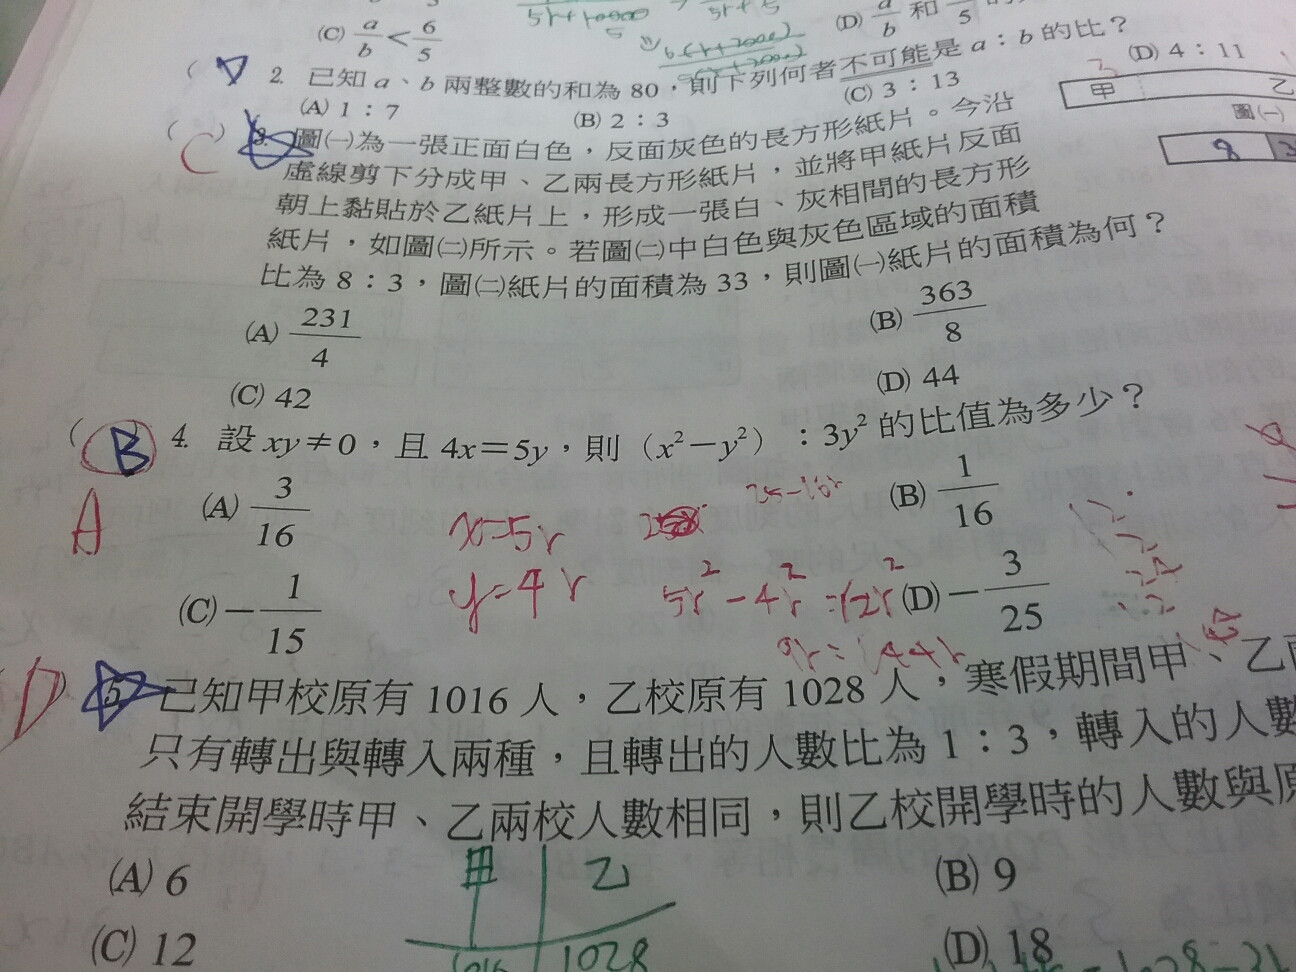 (C) a/b < 6/5
(D) a/b 和 /5
2. 已知 a、b 兩整數的和為 80，則下列何者不可能是 a：b 的比？
(A) 1：7
(B) 2：3
(C) 3：13
(D) 4：11
甲 乙
圖㈠
8 3
C
3. 圖㈠為一張正面白色，反面灰色的長方形紙片。今沿
虛線剪下分成甲、乙兩長方形紙片，並將甲紙片反面
朝上黏貼於乙紙片上，形成一張白、灰相間的長方形
紙片，如圖㈡所示。若圖㈡中白色與灰色區域的面積
比為 8：3，圖㈡紙片的面積為 33，則圖㈠紙片的面積為何？
(A) 231/4
(B) 363/8
(C) 42
(D) 44
( B 4. 設 xy≠0，且 4x=5y，則（x²－y²）：3y² 的比值為多少？
A
(A) 3/16
(B) 1/16
(C) －1/15
(D) －3/25
x=5r
y=4r
5r²－4r²=12r²
9r=144r
D
5. 已知甲校原有 1016 人，乙校原有 1028 人，寒假期間甲、乙
只有轉出與轉入兩種，且轉出的人數比為 1：3，轉入的人數
結束開學時甲、乙兩校人數相同，則乙校開學時的人數與原
(A) 6
(B) 9
(C) 12
(D) 18
甲 乙
1016 1028